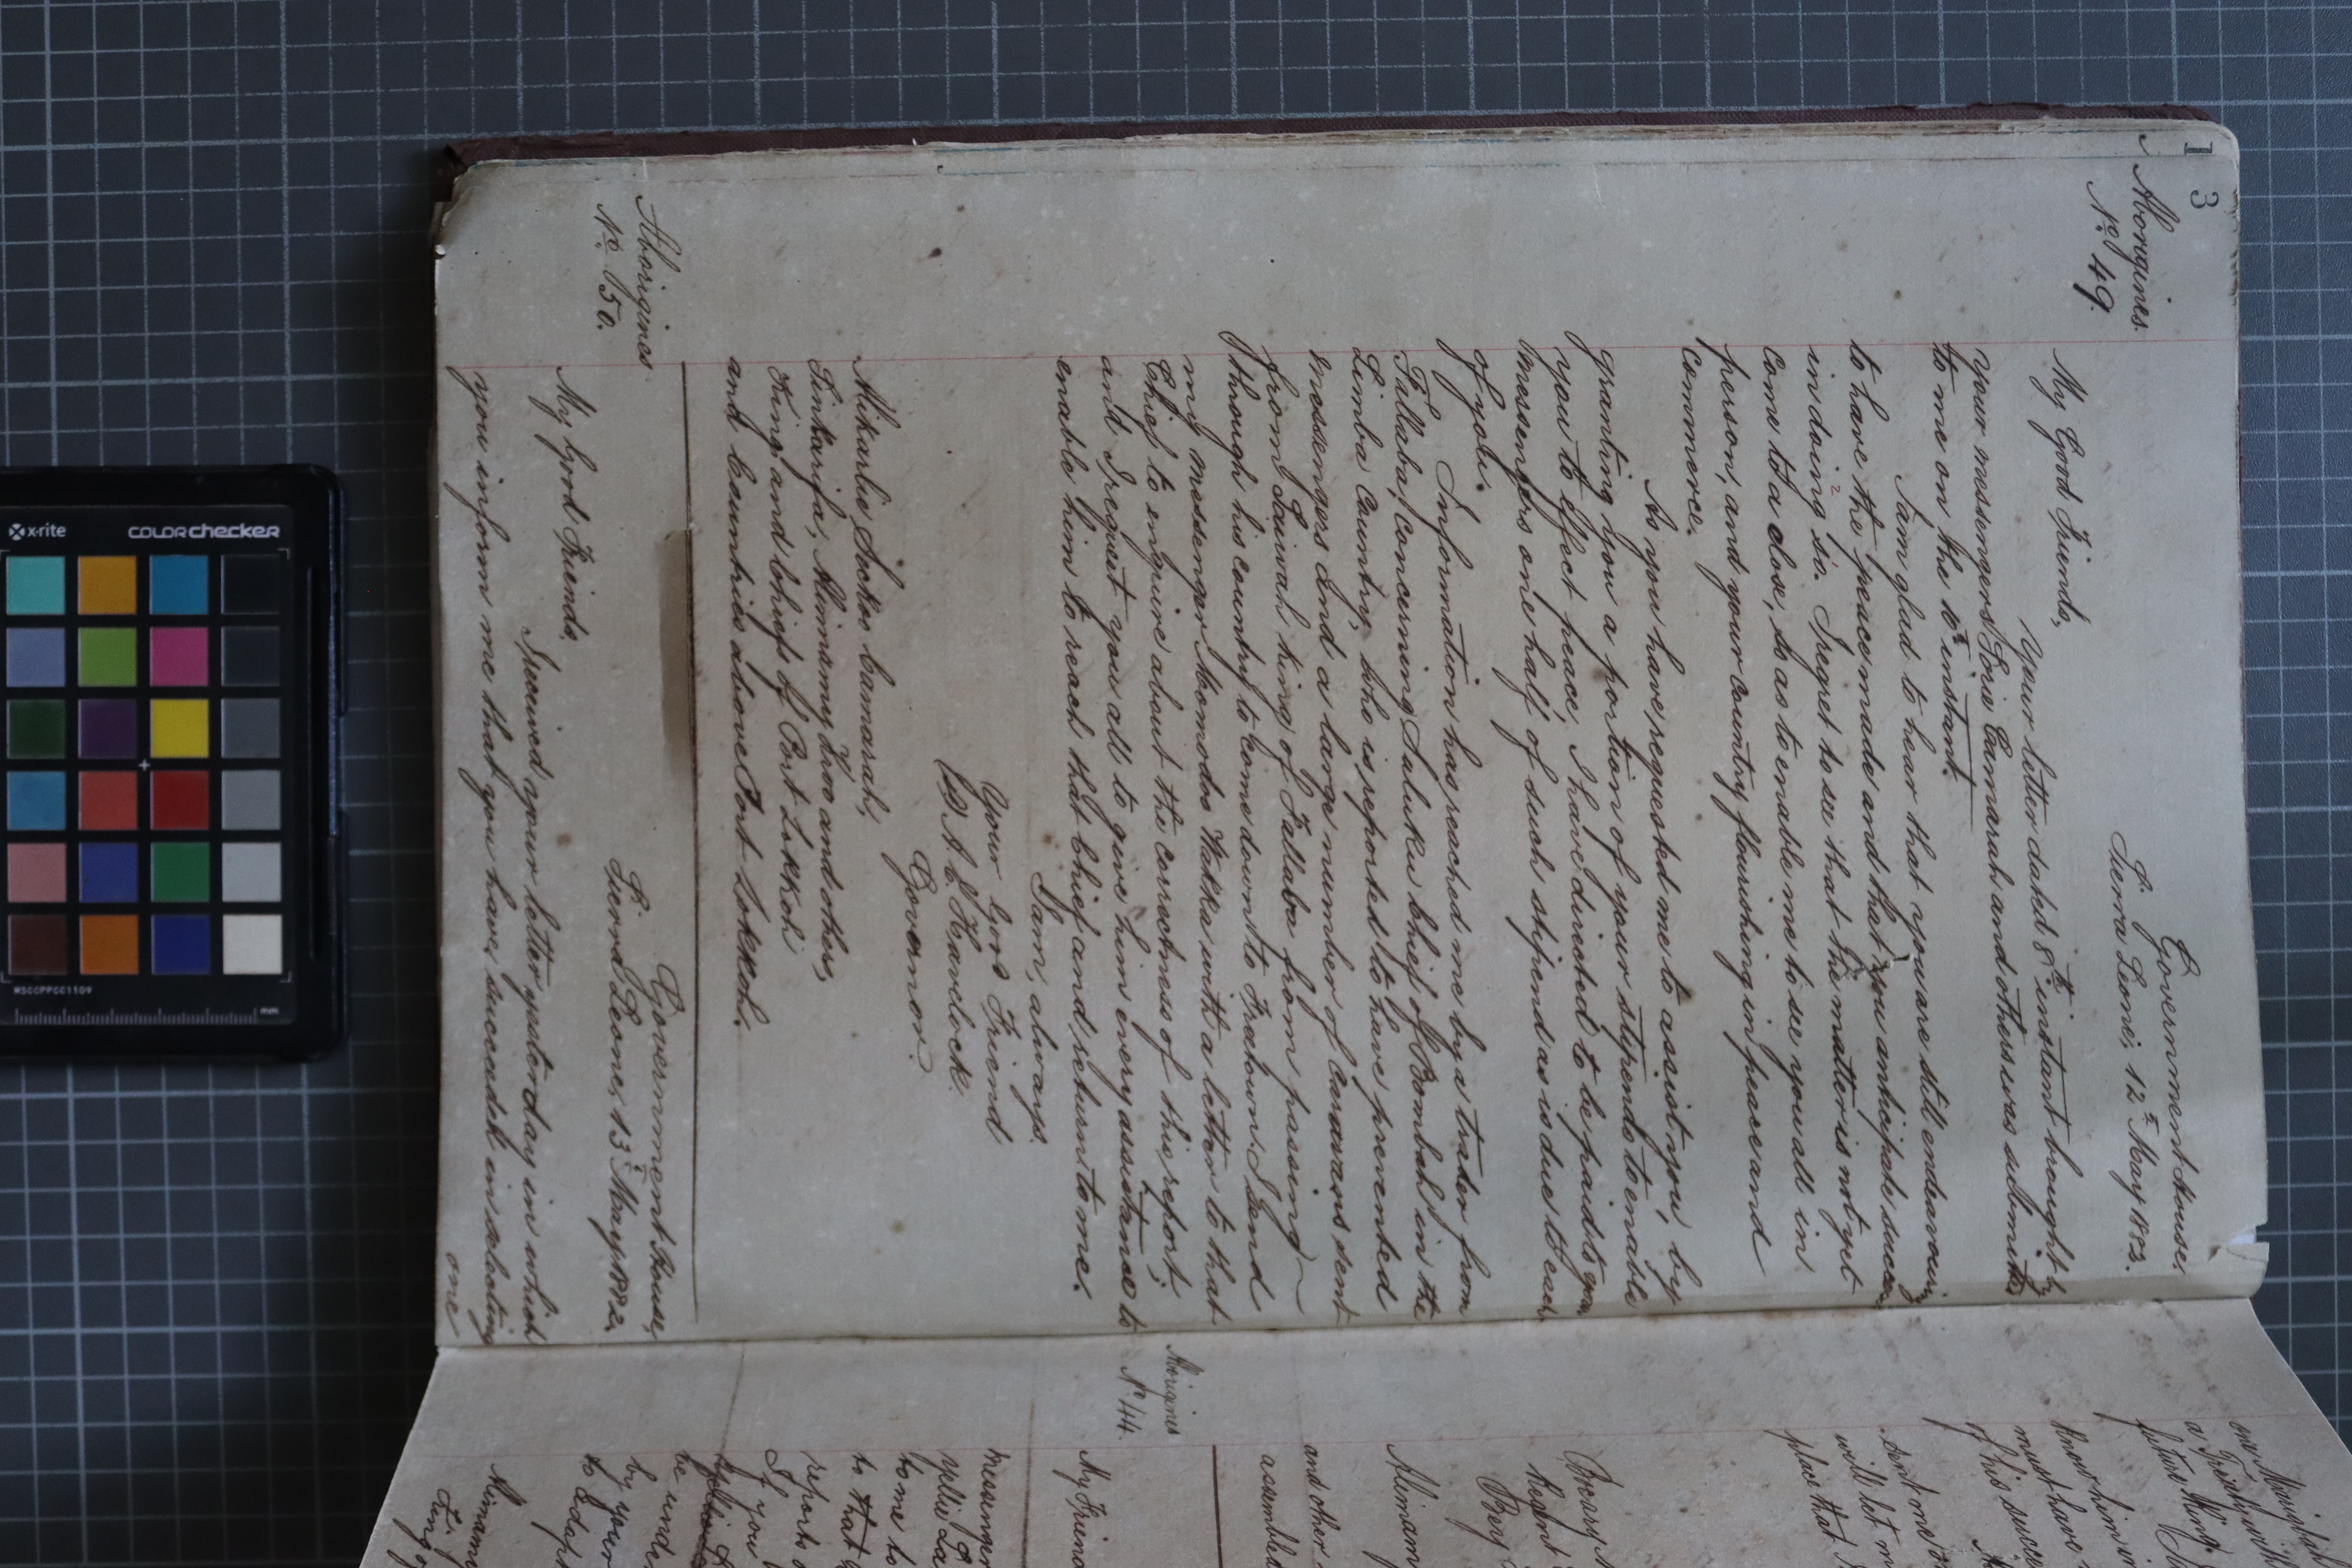 3
Aborigines.
No. 49.
Government House
Sierra Leone, 12th May 1882.
My Good Friends,
Your letter dated 8th instant brought by
your messengers Sorie Camarah and others was submitted
to me on the 10th instant.
I am glad to hear that you are still endeavouring
to have the peace made and that you anticipate success
in doing so. I regret to see that the matter is not yet
come to a close, so as to enable me to see you all in
person, and your country flourishing in peace and
commerce.
As you have requested me to assist you, by
granting you a portion of your stipends to enable
you to effect peace, I have directed to be paid to your
messengers one half of such stipend as is due to each
of you.
Information has reached me by a trader from
Fallaba, concerning Saluku Chief of Bombah in the
Limba Country, who is reported to have prevented
messengers and a large number of Caravans sent
from Sewah King of Fallaba from passing
through his country to come down to Freetown. I send
my messenger Momodoo Wakka with a letter to that
Chief to enquire about the correctness of this report;
and I request you all to give him every assistance to
enable him to reach that Chief and return to me.
I am, always,
Your Good Friend
A. E. Havelock.
Governor.
Mikarlie Sockoo Camarah,
Alimamy and others,
King and Chiefs of Port Lokkoh
and Countries above Port Lokkoh.
Aborigines
No. 50.
Government House,
Sierra Leone, 13th May 1882.
My Good Friends,
I received your letter yesterday in which
you inform me that you have succeeded in selecting
one
Aborigines
No 44.
My Friend
messenger
to me to
to that
report
If you
be under
by your
to
Alimamy
King
a
future King
know him
must have
of his success
sent me
will let
place that
Regent
Alimamy
and other
assembled